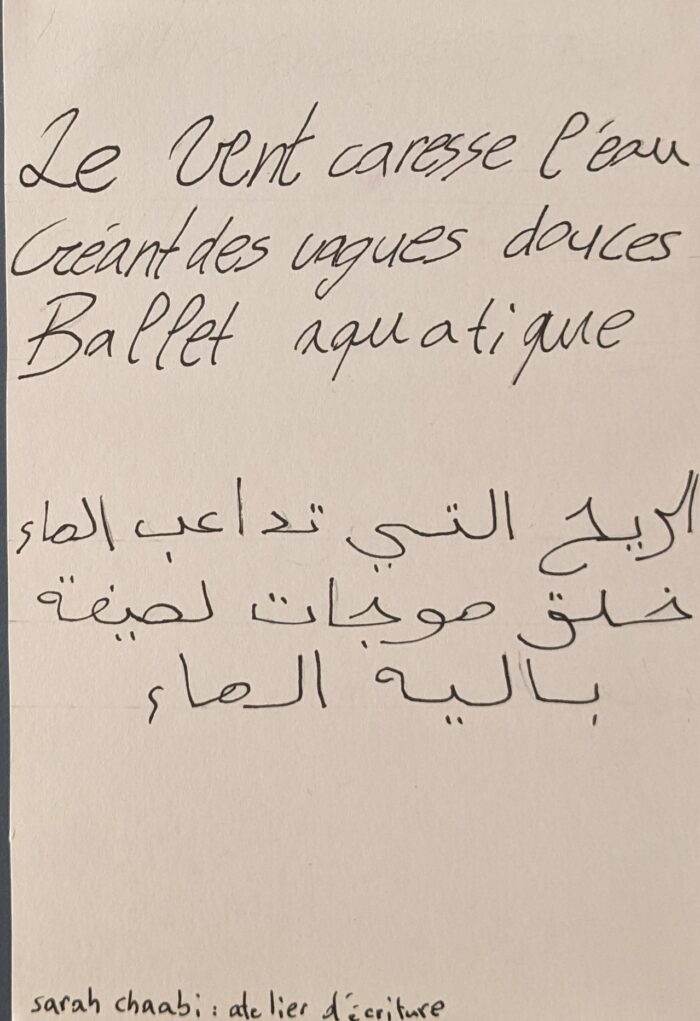 Le Vent caresse l'éau
Créant des vagues douces
Ballet aquatique
الريح التي تداعب الماء
خلق موجات لصيفة
باليه الماء
sarah chaabi : atelier d'écriture